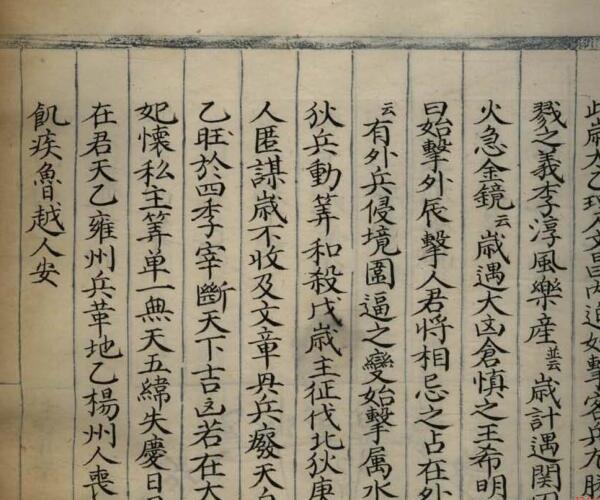 此歲太乙理人文昌內迫始擊客兵
戮之義李淳風樂產並云歲計遇関
火急金鏡云歲遇大凶倉慎之王希明
曰始擊外辰擊人君將相忌之占在外
云有外兵侵境圍逼之變始擊属水
狄兵動筭和殺戊歲主征伐北狄庚
人匿謀歲不收及文章毋兵癈天
乙旺於四季宰斷天下吉凶若在大
妃懷私主筭单一無天五緯失慶日
在君天乙雍州兵革地乙楊州人喪
飢疾魯越人安